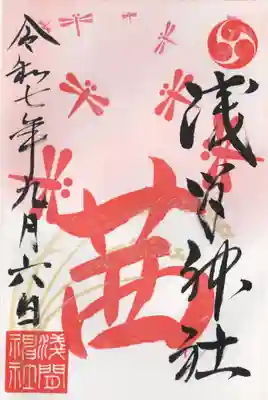 浅間神社
茜
令和七年九月六日
浅間神社